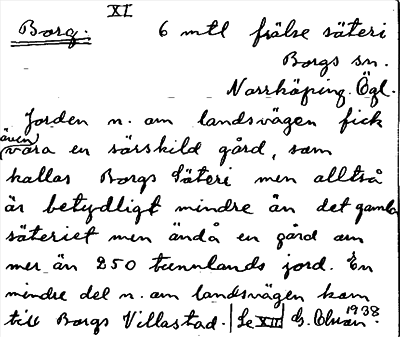 XI
Borg. 6 mtl frälse säteri
Borgs sn.
Norrköping. Ögl.
Jorden n. om landsvägen fick
även vara en särskild gård, som
kallas Borgs Säteri men alltså
är betydligt mindre än det gamla
säteriet men ändå en gård om
mer än 250 tunnlands jord. En
mindre del n. om landsvägen kom
till Borgs Villastad. Se XII 1938.